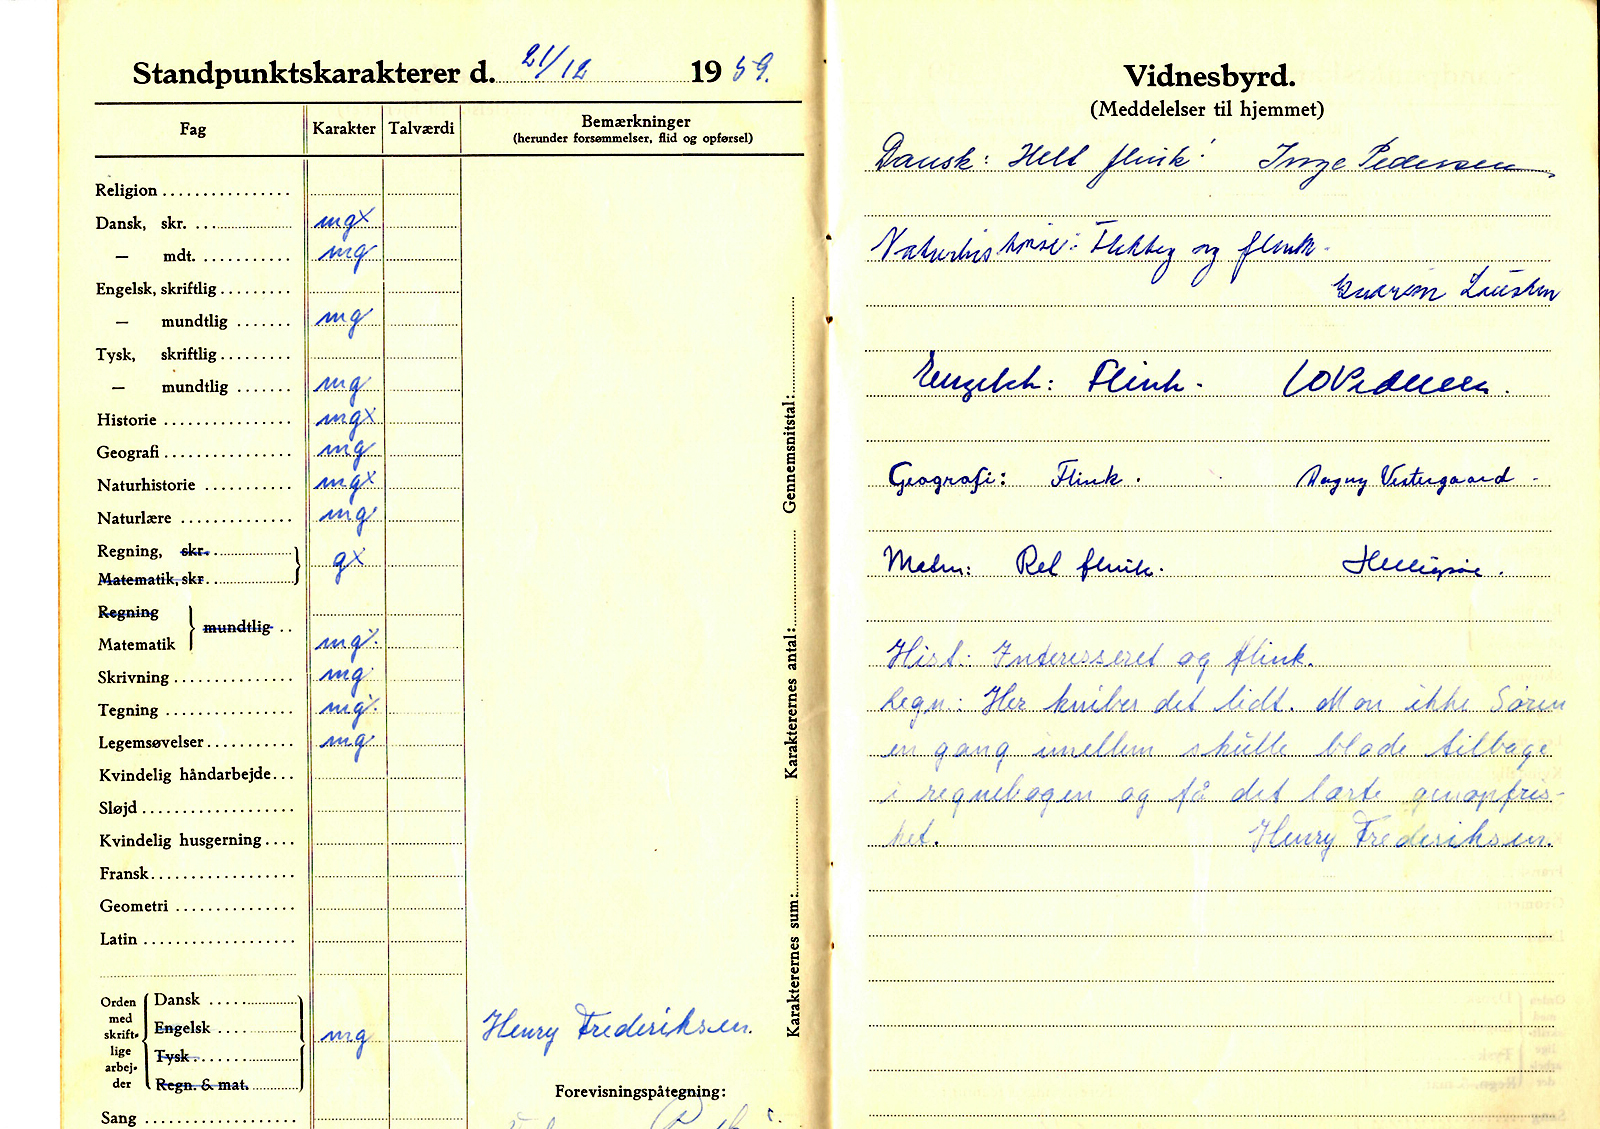 Standpunktskarakterer d. 21/12 1959.
Fag Karakter Talværdi Bemærkninger
(herunder forsømmelser, flid og opførsel)
Religion
Dansk, skr. mgx
— mdt. mg
Engelsk, skriftlig
— mundtlig mg
Tysk, skriftlig
— mundtlig mg
Historie mgx
Geografi mg
Naturhistorie mgx
Naturlære mg
Regning, skr. gx
Matematik, skr.
Regning
mundtlig
Matematik mg÷
Skrivning mg
Tegning mg÷
Legemsøvelser mg
Kvindelig håndarbejde
Sløjd
Kvindelig husgerning
Fransk
Geometri
Latin
Orden med skrift-lige arbej-der
Dansk
Engelsk mg
Tysk
Regn. & mat.
Henry Frederiksen.
Forevisningspåtegning:
Sang
Karakterernes sum: Karakterernes antal: Gennemsnitstal:
Vidnesbyrd.
(Meddelelser til hjemmet)
Dansk: Helt flink! Inge Pedersen
Naturhistorie: Flittig og flink.
Gudrun
Engelsk: Flink.
Geografi: Flink. Dagny Vestergaard
Matm: Ret flink.
Hist: Interesseret og flink.
Regn: Her kniber det lidt. Mon ikke Søren
en gang imellem skulle blade tilbage
i regnebogen og få det lærte genopfris-
ket. Henry Frederiksen.